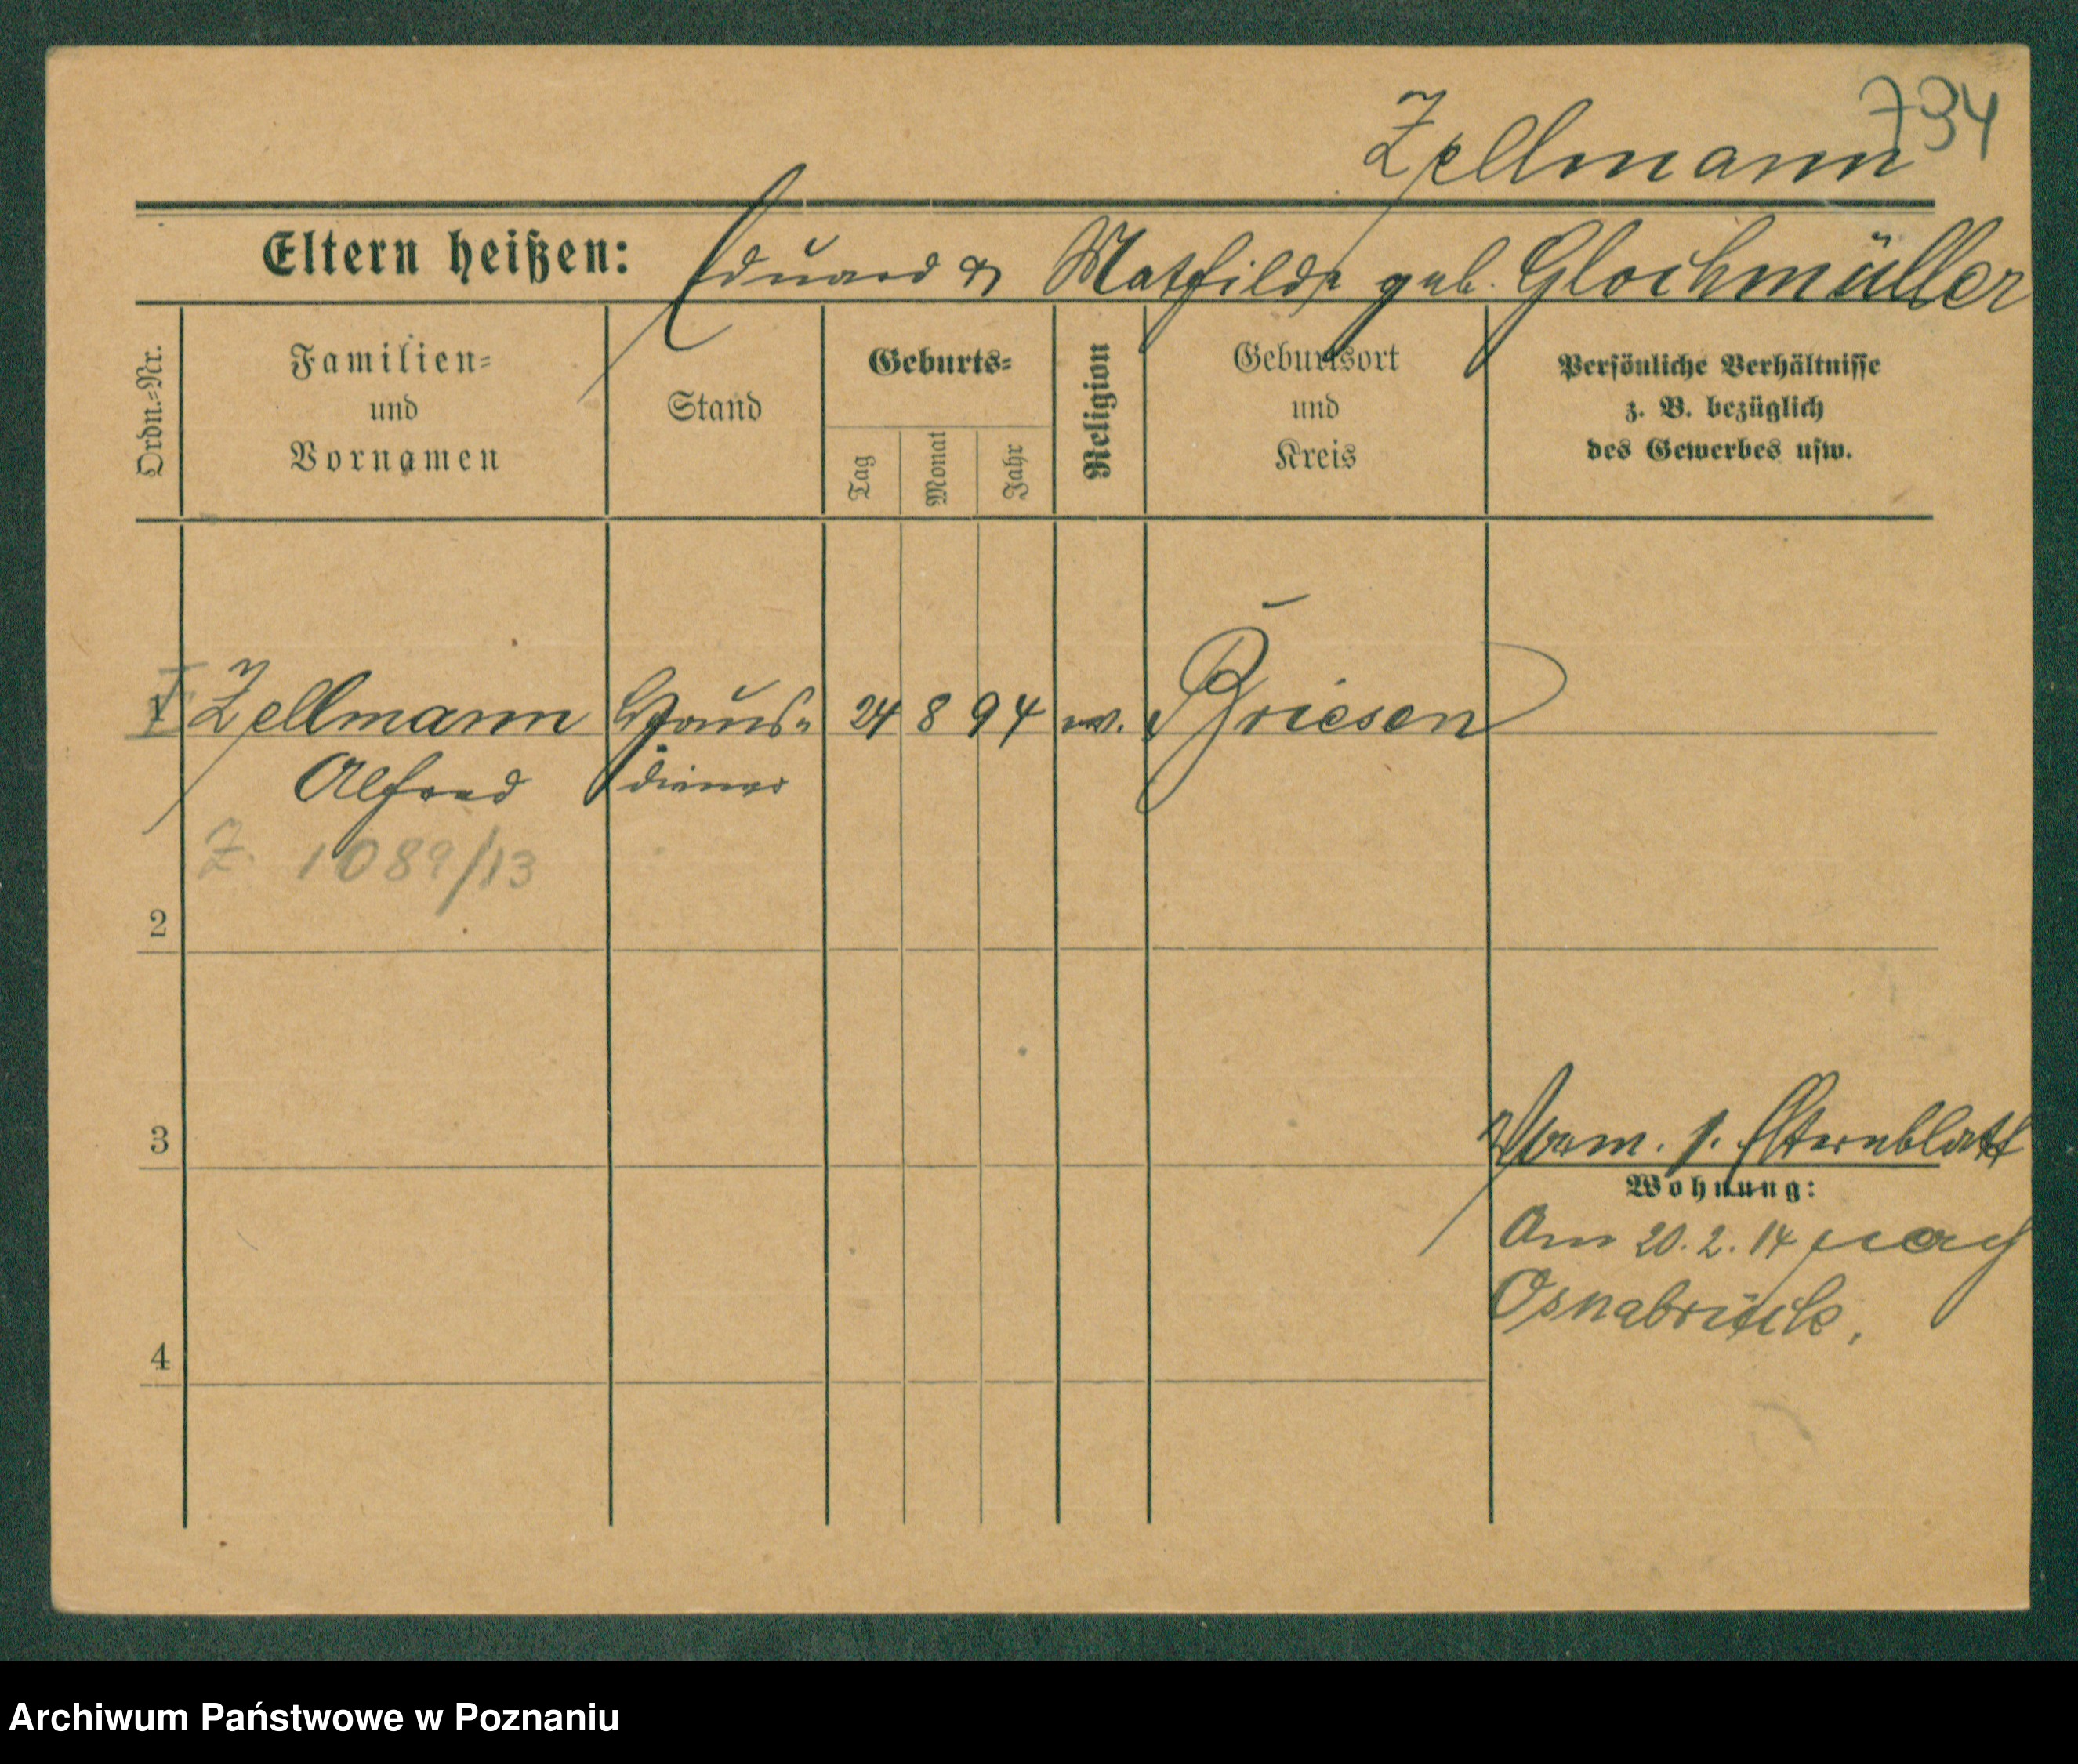 734
Zellmann
Eltern heißen: Eduard & Mathilde geb. Glochmüller
Ordn.=Nr.
Familien=
und
Vornamen
Stand
Geburts=
Tag
Monat
Jahr
Religion
Geburtsort
und
Kreis
Persönliche Verhältnisse
z. B. bezüglich
des Gewerbes usw.
1 Zellmann Haus= 24 8 94 ev. Briesen
Alfred diener
Z. 1089/13
2
3
Verm. s. Elternblatt
Wohnung:
Am 20.2.14 nach
Osnabrück.
4
Archiwum Państwowe w Poznaniu